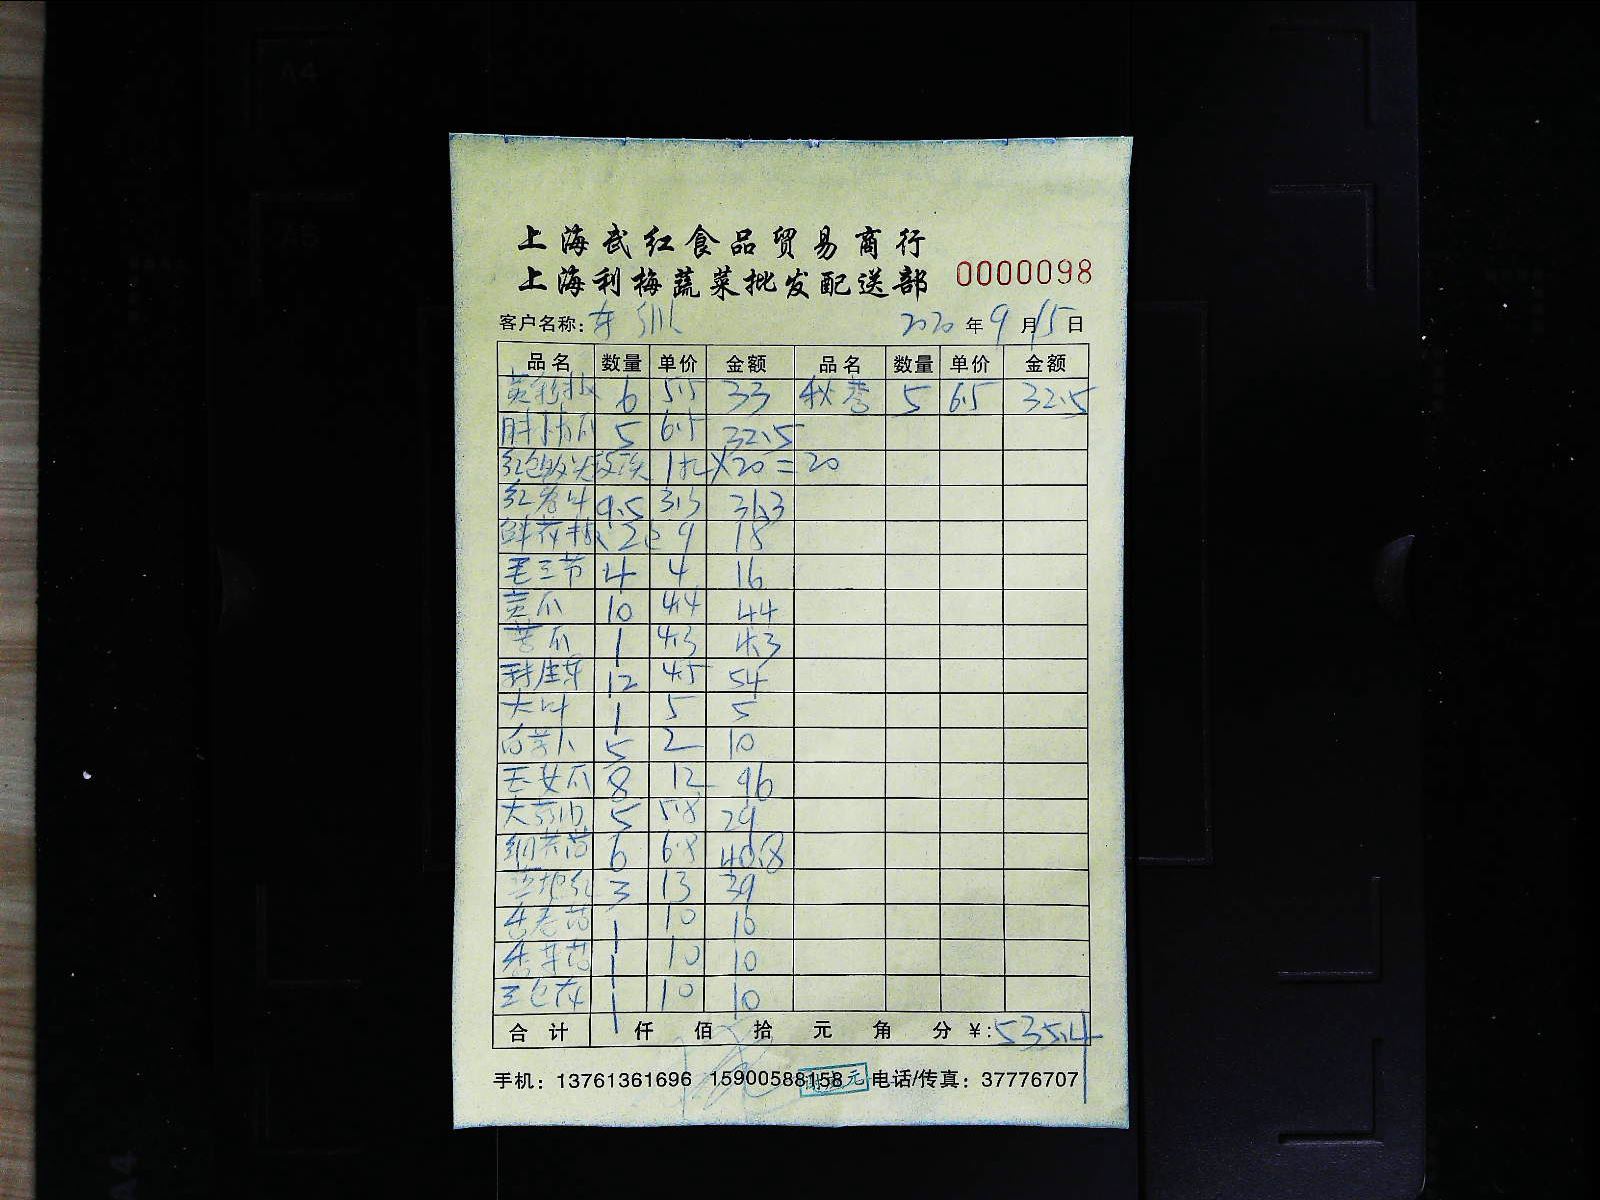 上海武红食品贸易商行
上海利梅蔬菜批发配送部 0000098
客户名称: 2020年9月15日
品名 数量 单价 金额 品名 数量 单价 金额
6 5.5 33 秋葵 5 6.5 32.5
5 6.5 32.5
1扎×20=20
9.5 3.3 31.3
2 9 18
毛豆节 4 4 16
黄瓜 10 4.4 44
苦瓜 1 4.3 4.3
12 4.5 54
大叶 1 5 5
白萝卜 5 2 10
玉女瓜 8 12 96
5 5.8 29
6 6.8 40.8
3 13 39
1 10 10
1 10 10
三色花 1 10 10
合计 仟 佰 拾 元 角 分 ¥:535.4
手机：13761361696 15900588158 电话/传真：37776707